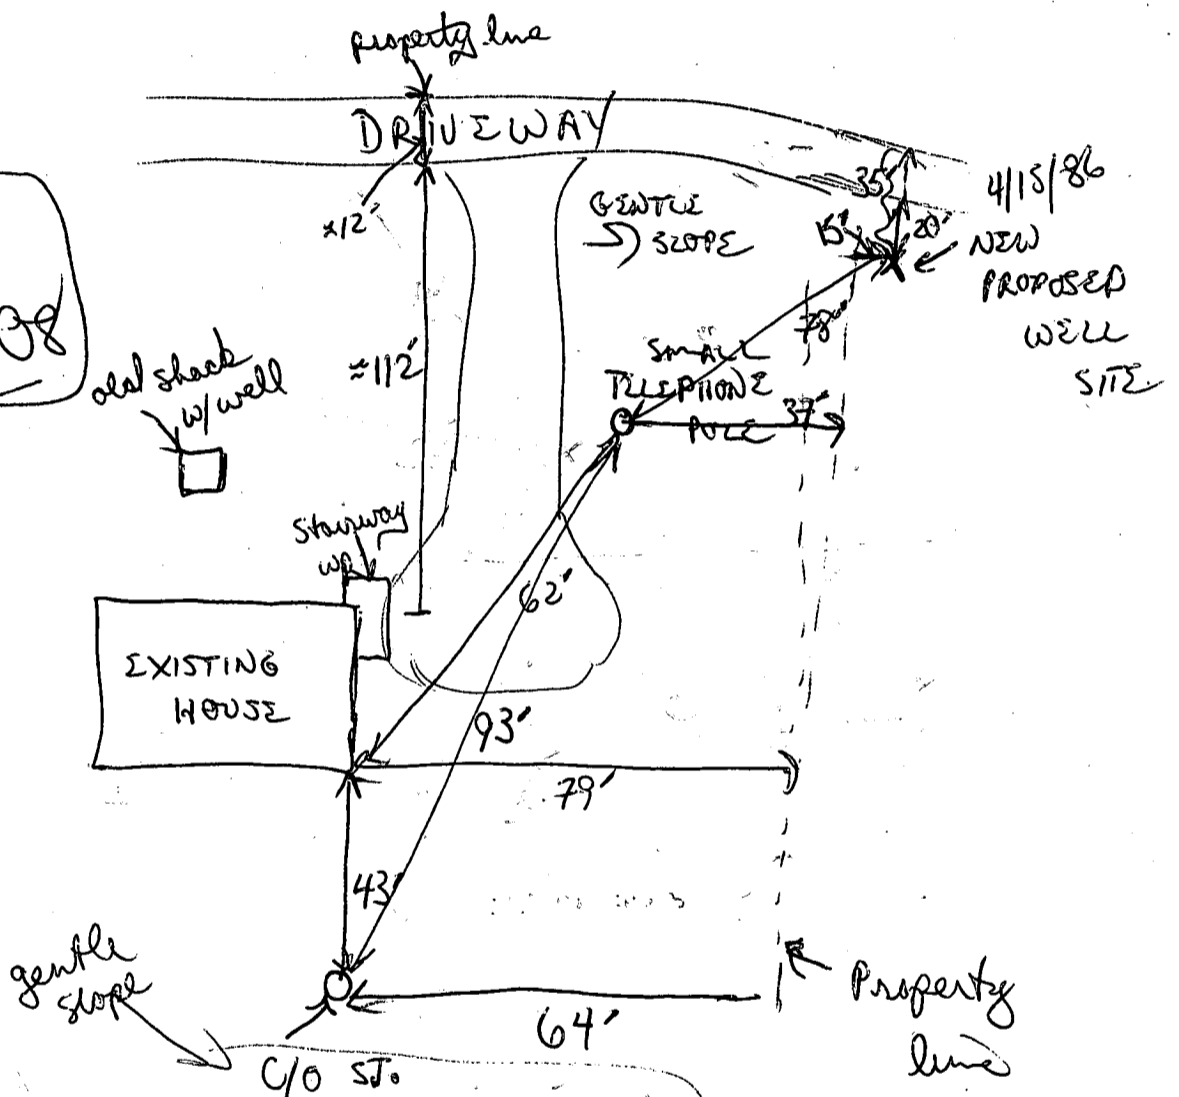 property line
DRIVEWAY
≈12'
35'
4/15/86
GENTLE
SLOPE
15'
20'
NEW
PROPOSED
WELL
SITE
08
≈112'
78'
old shack
w/well
SMALL
TELEPHONE
POLE
37'
Stairway
62'
EXISTING
HOUSE
93'
79'
43'
gentle
slope
64'
Property
line
C/O ST.